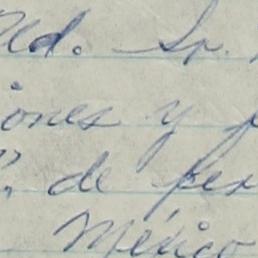 Ud. Sr.
iones y p
", de per
México